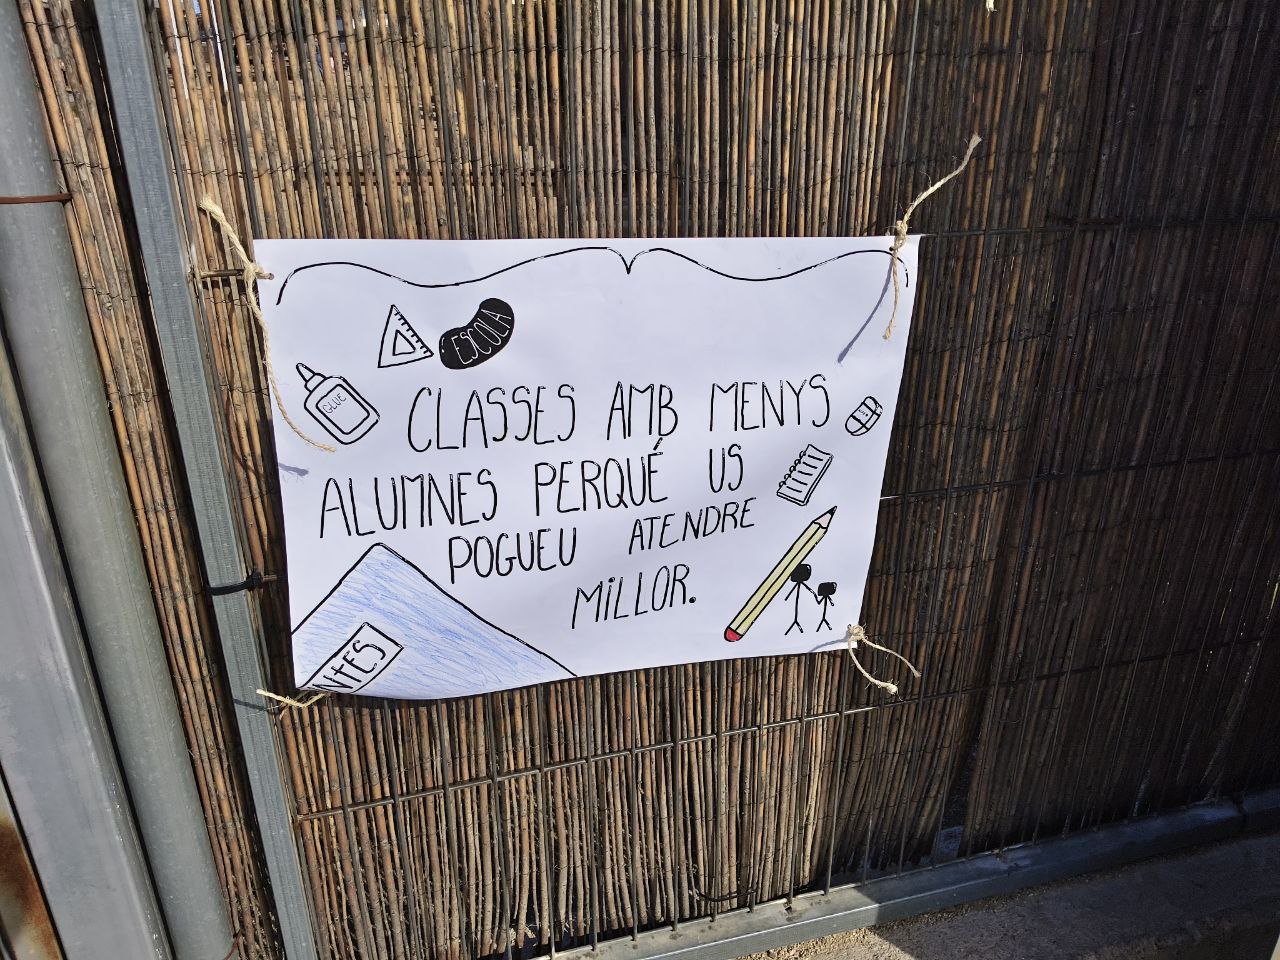 ESCOLA
GLUE
CLASSES AMB MENYS
ALUMNES PERQUÉ US
POGUEU ATENDRE
MILLOR.